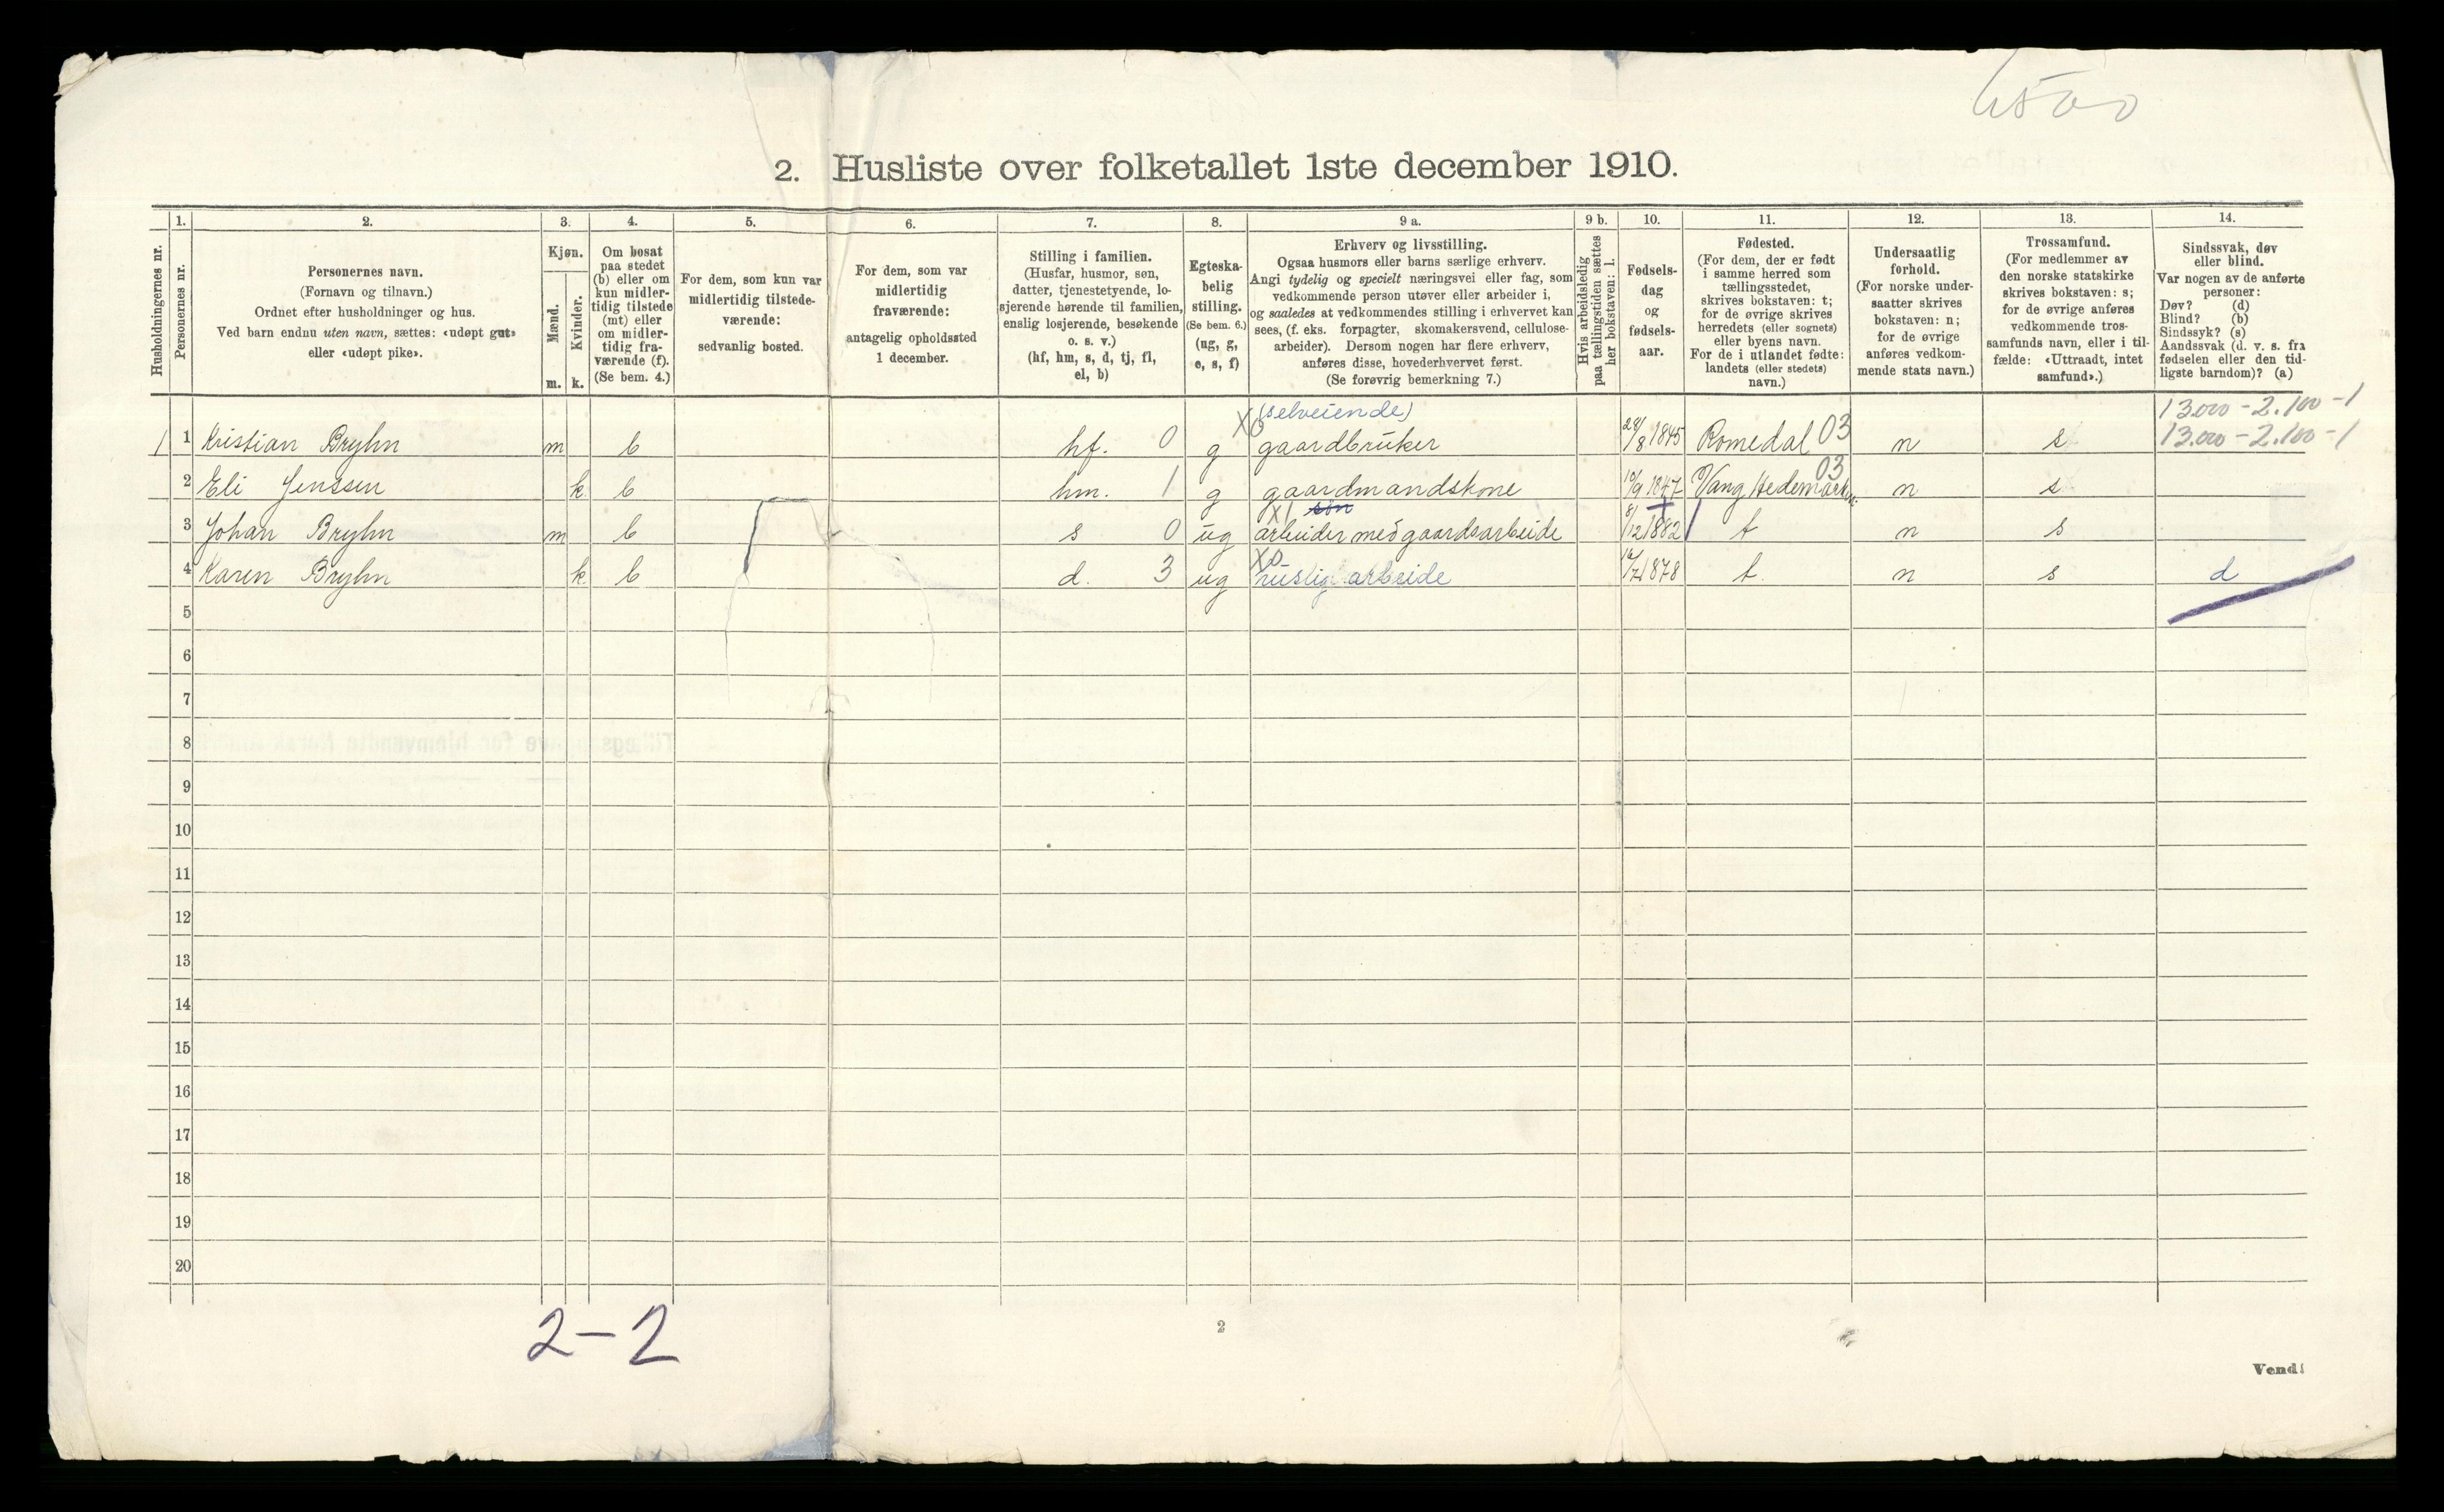 2. Husliste over folketallet 1ste december 1910.
Husholdningernes nr.
1.
Personernes nr.
2.
Personernes navn.
(Fornavn og tilnavn.)
Ordnet efter husholdninger og hus.
Ved barn endnu uten navn, sættes: «udøpt gut»
eller «udøpt pike».
3.
Kjøn.
Mænd.
Kvinder.
m. k.
4.
Om bosat
paa stedet
(b) eller om
kun midler-
tidig tilstede
(mt) eller
om midler-
tidig fra-
værende (f).
(Se bem. 4.)
5.
For dem, som kun var
midlertidig tilstede-
værende:
sedvanlig bosted.
6.
For dem, som var
midlertidig
fraværende:
antagelig opholdssted
1 december.
7.
Stilling i familien.
(Husfar, husmor, søn,
datter, tjenestetyende, lo-
sjerende hørende til familien,
enslig losjerende, besøkende
o. s. v.)
(hf, hm, s, d, tj, fl,
el, b)
8.
Egteska-
belig
stilling.
(Se bem. 6.)
(ug, g,
e, s, f)
9 a.
Erhverv og livsstilling.
Ogsaa husmors eller barns særlige erhverv.
Angi tydelig og specielt næringsvei eller fag, som
vedkommende person utøver eller arbeider i,
og saaledes at vedkommendes stilling i erhvervet kan
sees, (f. eks. forpagter, skomakersvend, cellulose-
arbeider). Dersom nogen har flere erhverv,
anføres disse, hovederhvervet først.
(Se forøvrig bemerkning 7.)
9 b.
Hvis arbeidsledig
paa tællingstiden sættes
her bokstaven: l.
10.
Fødsels-
dag
og
fødsels-
aar.
11.
Fødested.
(For dem, der er født
i samme herred som
tællingsstedet,
skrives bokstaven: t;
for de øvrige skrives
herredets (eller sognets)
eller byens navn.
For de i utlandet fødte:
landets (eller stedets)
navn.)
12.
Undersaatlig
forhold.
(For norske under-
saatter skrives
bokstaven: n;
for de øvrige
anføres vedkom-
mende stats navn.)
13.
Trossamfund.
(For medlemmer av
den norske statskirke
skrives bokstaven: s;
for de øvrige anføres
vedkommende tros-
samfunds navn, eller i til-
fælde: «Uttraadt, intet
samfund».)
14.
Sindssvak, døv
eller blind.
Var nogen av de anførte
personer:
Døv? (d)
Blind? (b)
Sindssyk? (s)
Aandssvak (d. v. s. fra
fødselen eller den tid-
ligste barndom)? (a)
(selveiende) 13.000 - 2.100 - 1
1 1 Kristian Bryhn m b hf. 0 g gaardbruker 28/8 1845 Romedal 03 n s 13.000 - 2.100 - 1
2 Eli Jenssen k b hm. 1 g gaardmandskone 10/9 1847 Vang Hedemarken 03 n s
X1 søn
3 Johan Bryhn m b s 0 ug arbeider med gaardsarbeide 8/12 1882 t n s
X0
4 Karen Bryhn k b d. 3 ug huslig arbeide 16/7 1878 t. n s d
5
6
7
8
9
10
11
12
13
14
15
16
17
18
19
20
2 - 2
2
Vend!